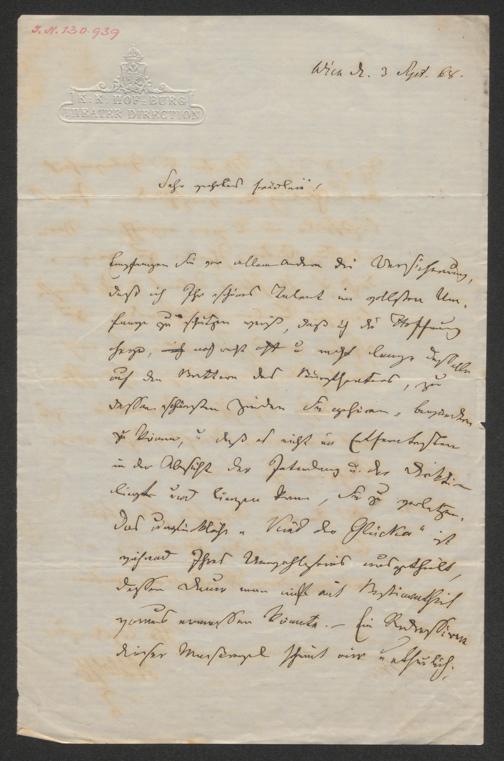 I.N. 130.939
K. K. HOF-BURG
THEATER DIRECTION
Wien d. 3 Sept. 68.
Sehr geehrtes Fräulein!
Empfangen Sie vor allem andern die Versicherung,
daß ich Ihr schönes Talent im vollsten Um-
fange zu schätzen weiß, daß ich die Hoffnung
hege, noch recht oft u. recht lange dasselbe
auf den Brettern des Burgtheaters, zu
dessen schönsten Zierden Sie gehören, bewundern
zu können, u. daß es nicht im Entferntesten
in der Absicht der Intendanz u. der Direktion
liegt und liegen kann, Sie zu verletzen.
Das "Kind des Glückes" ist
während Ihres Unwohlseins ausgetheilt,
dessen Dauer man nicht mit Bestimmtheit
voraus ermessen konnte. – Ein Redressiren
dieser Maßregel scheint mir unthunlich,